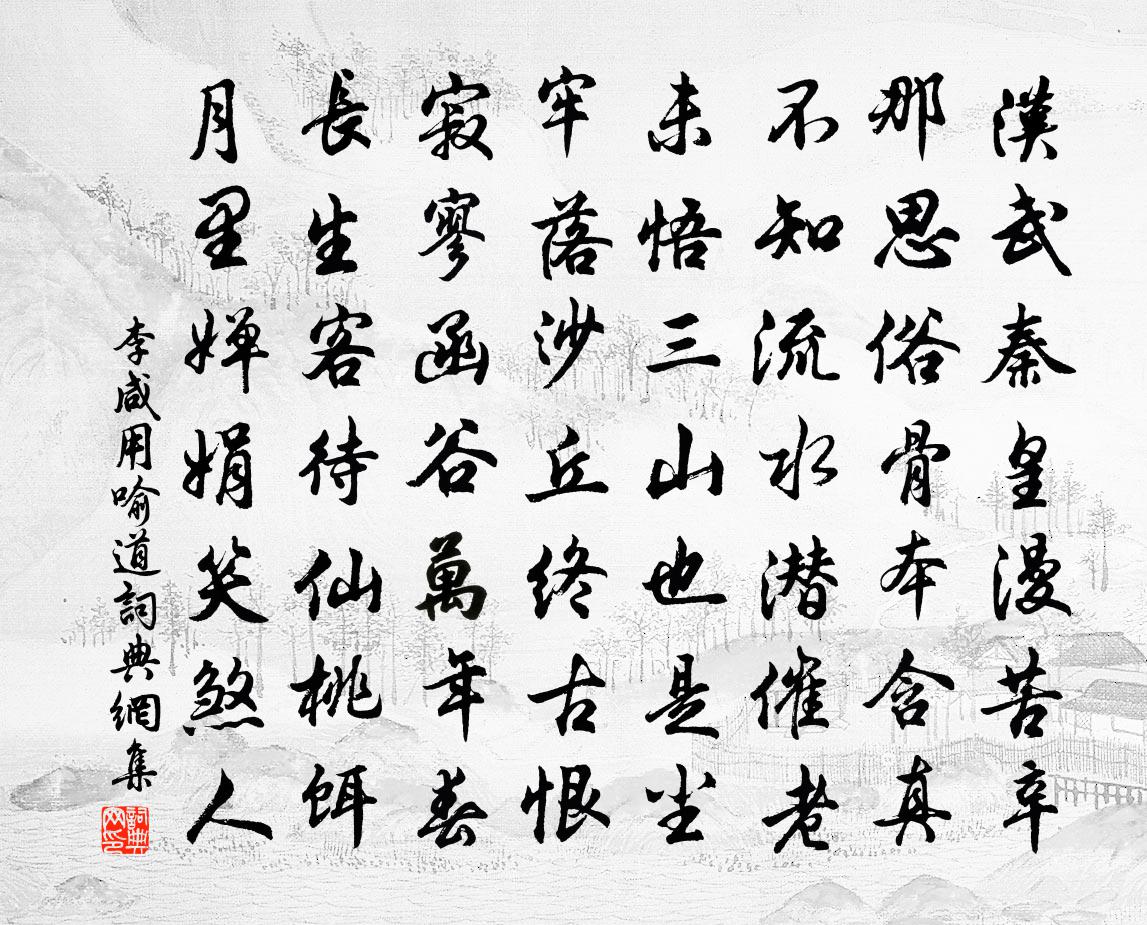 漢武秦皇漫苦辛
那思俗骨本含真
不知流水潜催老
未悟三山也是尘
牢落沙丘终古恨
寂寥函谷萬年春
長生客待仙桃餌
月里嬋娟笑煞人
李咸用喻道詞典網集
詞典网印